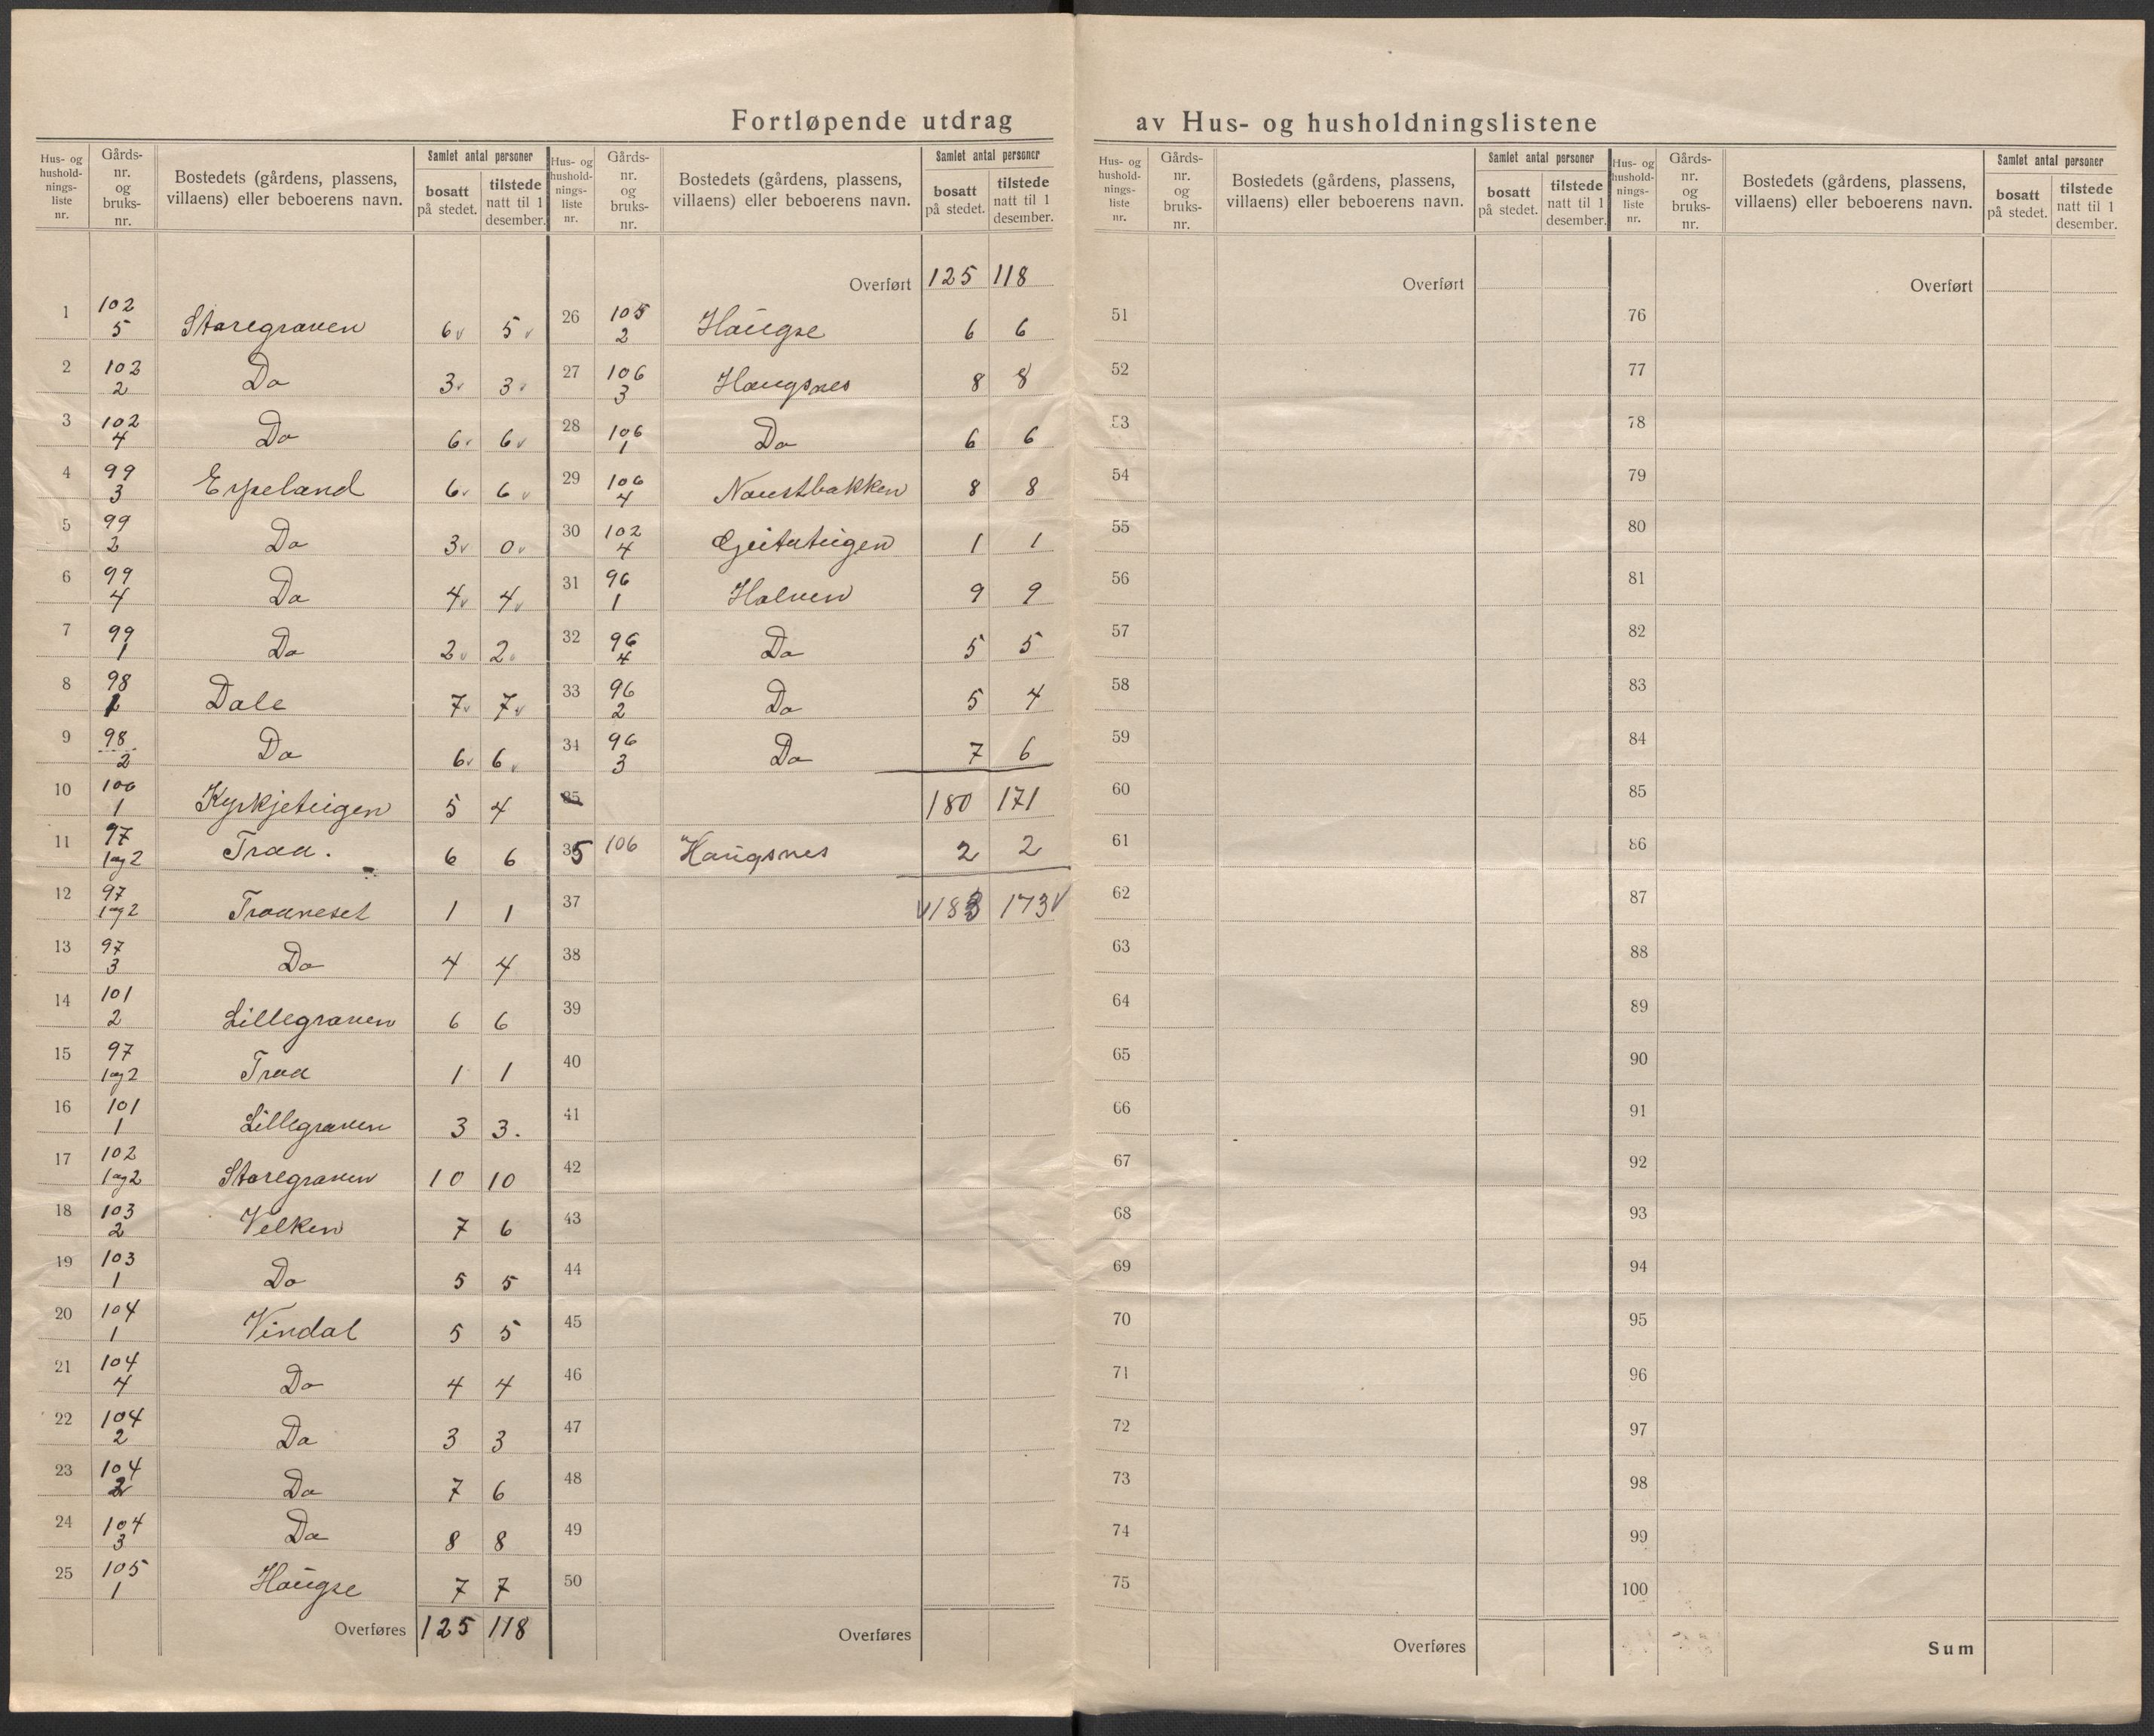 Fortløpende utdrag av Hus- og husholdningslistene
Hus- og hushold-nings-liste nr. | Gårds-nr. og bruks-nr. | Bostedets (gårdens, plassens, villaens) eller beboerens navn. | Samlet antal personer | bosatt på stedet. | tilstede natt til 1 desember.
1 102 5 Storegraven 6v 5v
2 102 2 Do 3v 3v
3 102 4 Do 6v 6v
4 99 3 Erpeland 6v 6v
5 99 2 Do 3v 0v
6 99 4 Do 4v 4v
7 99 1 Do 2v 2v
8 98 1 Dale 7v 7v
9 98 2 Do 6v 6v
10 100 1 Kyrkjeteigen 5 4
11 97 1 og 2 Traa. 6 6
12 97 1 og 2 Traaneset 1 1
13 97 3 Do 4 4
14 101 2 Lillegraven 6 6
15 97 1 og 2 Traa 1 1
16 101 1 Lillegraven 3 3.
17 102 1 og 2 Storegraven 10 10
18 103 2 Velken 7 6
19 103 1 Do 5 5
20 104 1 Vindal 5 5
21 104 4 Do 4 4
22 104 2 Do 3 3
23 104 2 Do 7 6
24 104 3 Do 8 8
25 105 1 Haugse 7 7
Overføres 125 118
Hus- og hushold-nings-liste nr. | Gårds-nr. og bruks-nr. | Bostedets (gårdens, plassens, villaens) eller beboerens navn. | Samlet antal personer | bosatt på stedet. | tilstede natt til 1 desember.
Overført 125 118
26 105 2 Haugse 6 6
27 106 3 Haugsnes 8 8
28 106 1 Do 6 6
29 106 4 Naustbakken 8 8
30 102 4 Geitateigen 1 1
31 96 1 Halven 9 9
32 96 4 Do 5 5
33 96 2 Do 5 4
34 96 3 Do 7 6
35 180 171
35 106 Haugsnes 2 2
37 v 183 173 v
38
39
40
41
42
43
44
45
46
47
48
49
50
Overføres
Hus- og hushold-nings-liste nr. | Gårds-nr. og bruks-nr. | Bostedets (gårdens, plassens, villaens) eller beboerens navn. | Samlet antal personer | bosatt på stedet. | tilstede natt til 1 desember.
Overført
51
52
53
54
55
56
57
58
59
60
61
62
63
64
65
66
67
68
69
70
71
72
73
74
75
Overføres
Hus- og hushold-nings-liste nr. | Gårds-nr. og bruks-nr. | Bostedets (gårdens, plassens, villaens) eller beboerens navn. | Samlet antal personer | bosatt på stedet. | tilstede natt til 1 desember.
Overført
76
77
78
79
80
81
82
83
84
85
86
87
88
89
90
91
92
93
94
95
96
97
98
99
100
Sum